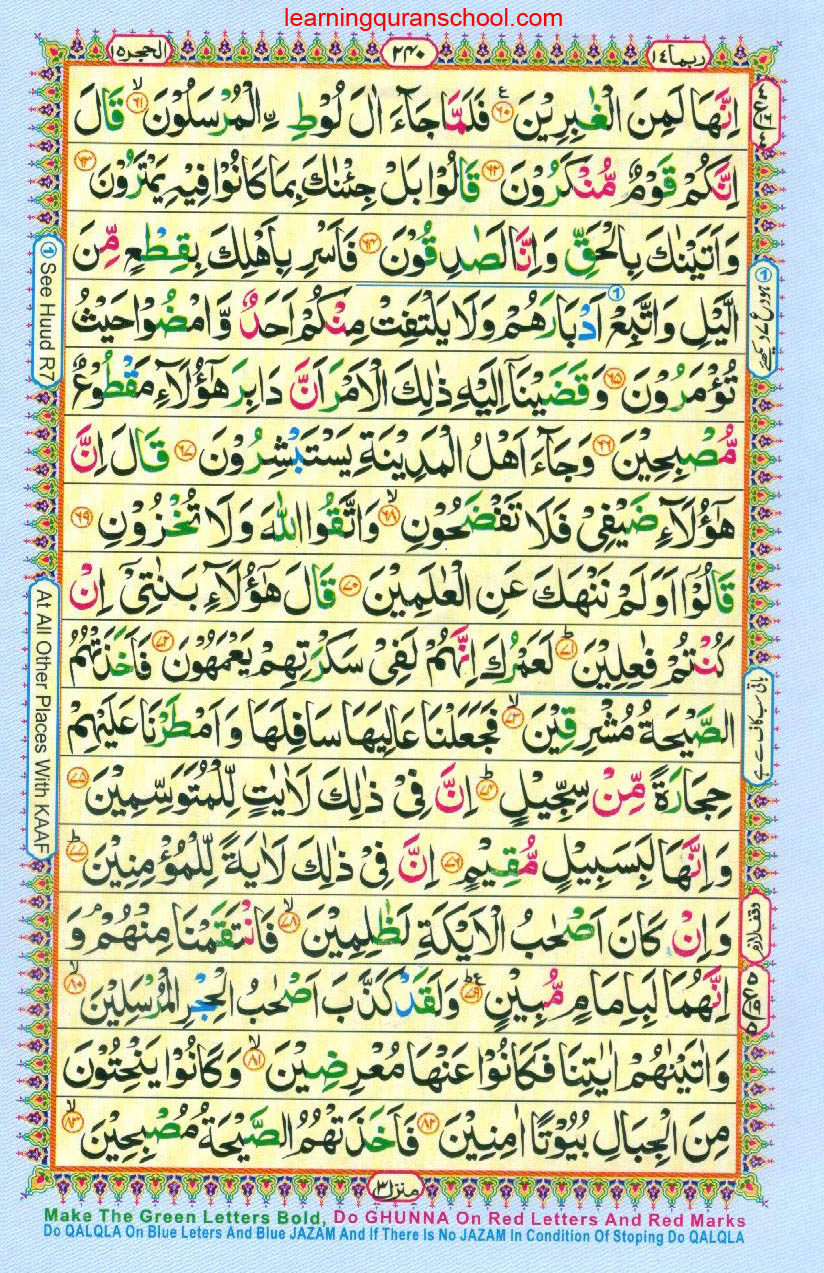 learningquranschool.com
الحجر ۱۵
۲۴۰
ربما ۱۴
اِنَّهَا لَمِنَ الْغٰبِرِيْنَ ۶۰ فَلَمَّا جَآءَ اٰلَ لُوْطِ ِۨالْمُرْسَلُوْنَ ۶۱ قَالَ
اِنَّكُمْ قَوْمٌ مُّنْكَرُوْنَ ۶۲ قَالُوْا بَلْ جِئْنٰكَ بِمَا كَانُوْا فِيْهِ يَمْتَرُوْنَ ۶۳
وَاَتَيْنٰكَ بِالْحَقِّ وَاِنَّا لَصٰدِقُوْنَ ۶۴ فَاَسْرِ بِاَهْلِكَ بِقِطْعٍ مِّنَ
الَّيْلِ وَاتَّبِعْ اَدْبَارَهُمْ وَلَا يَلْتَفِتْ مِنْكُمْ اَحَدٌ وَّامْضُوْا حَيْثُ
تُؤْمَرُوْنَ ۶۵ وَقَضَيْنَآ اِلَيْهِ ذٰلِكَ الْاَمْرَ اَنَّ دَابِرَ هٰٓؤُلَآءِ مَقْطُوْعٌ
مُّصْبِحِيْنَ ۶۶ وَجَآءَ اَهْلُ الْمَدِيْنَةِ يَسْتَبْشِرُوْنَ ۶۷ قَالَ اِنَّ
هٰٓؤُلَآءِ ضَيْفِيْ فَلَا تَفْضَحُوْنِ ۶۸ وَاتَّقُوا اللّٰهَ وَلَا تُخْزُوْنِ ۶۹
قَالُوْٓا اَوَلَمْ نَنْهَكَ عَنِ الْعٰلَمِيْنَ ۷۰ قَالَ هٰٓؤُلَآءِ بَنٰتِيْٓ اِنْ
كُنْتُمْ فٰعِلِيْنَ ۷۱ لَعَمْرُكَ اِنَّهُمْ لَفِيْ سَكْرَتِهِمْ يَعْمَهُوْنَ ۷۲ فَاَخَذَتْهُمُ
الصَّيْحَةُ مُشْرِقِيْنَ ۷۳ فَجَعَلْنَا عَالِيَهَا سَافِلَهَا وَاَمْطَرْنَا عَلَيْهِمْ
حِجَارَةً مِّنْ سِجِّيْلٍ ۷۴ اِنَّ فِيْ ذٰلِكَ لَاٰيٰتٍ لِّلْمُتَوَسِّمِيْنَ ۷۵
وَاِنَّهَا لَبِسَبِيْلٍ مُّقِيْمٍ ۷۶ اِنَّ فِيْ ذٰلِكَ لَاٰيَةً لِّلْمُؤْمِنِيْنَ ۷۷
وَاِنْ كَانَ اَصْحٰبُ الْاَيْكَةِ لَظٰلِمِيْنَ ۷۸ فَانْتَقَمْنَا مِنْهُمْ ۘ وَ
اِنَّهُمَا لَبِاِمَامٍ مُّبِيْنٍ ۷۹ وَلَقَدْ كَذَّبَ اَصْحٰبُ الْحِجْرِ الْمُرْسَلِيْنَ ۸۰
وَاٰتَيْنٰهُمْ اٰيٰتِنَا فَكَانُوْا عَنْهَا مُعْرِضِيْنَ ۸۱ وَكَانُوْا يَنْحِتُوْنَ
مِنَ الْجِبَالِ بُيُوْتًا اٰمِنِيْنَ ۸۲ فَاَخَذَتْهُمُ الصَّيْحَةُ مُصْبِحِيْنَ ۸۳
منزل ۳
① See Huud R7
At All Other Places With KAAF
Make The Green Letters Bold, Do GHUNNA On Red Letters And Red Marks
Do QALQLA On Blue Leters And Blue JAZAM And If There Is No JAZAM In Condition Of Stoping Do QALQLA